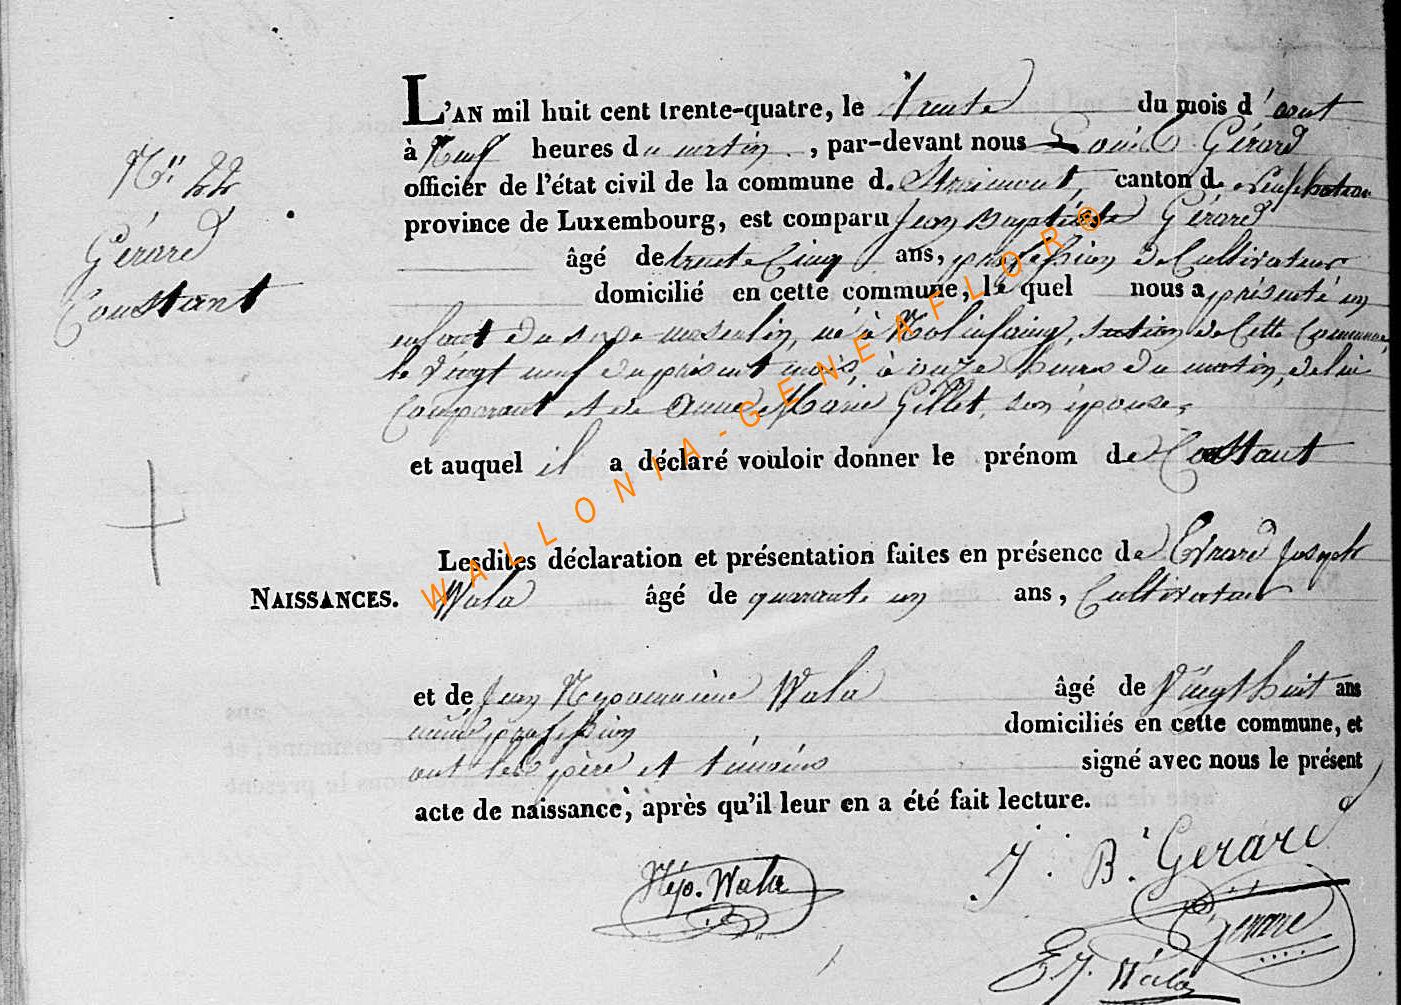 L'AN mil huit cent trente-quatre, le trente du mois d'aout
à Neuf heures du matin, par-devant nous Louis Gérard
officier de l'état civil de la commune de Straimont, canton de Neufchateau
province de Luxembourg, est comparu Jean Baptiste Gérard
âgé de trente Cinq ans, profession de Cultivateur
domicilié en cette commune, le quel nous a présenté un
enfant du sexe masculin, né à Molinfaing, section de Cette Commune,
le Vingt neuf du présent mois, à onze heures du matin, de lui
Comparant et de Anne Marie Gillet, son épouse,
et auquel il a déclaré vouloir donner le prénom de Constant
Lesdites déclaration et présentation faites en présence de Evrard Joseph
Wala âgé de quarante un ans, Cultivateur
et de Jean Népomucène Wala âgé de Vingt huit ans
même profession domiciliés en cette commune, et
ont les père et témoins signé avec nous le présent
acte de naissance, après qu'il leur en a été fait lecture.
N° 22
Gérard
Constant
NAISSANCES.
Nép. Wala
J. B. Gerard
Gerard
E J. Wala
WALLONIA-GENEAFLOR®